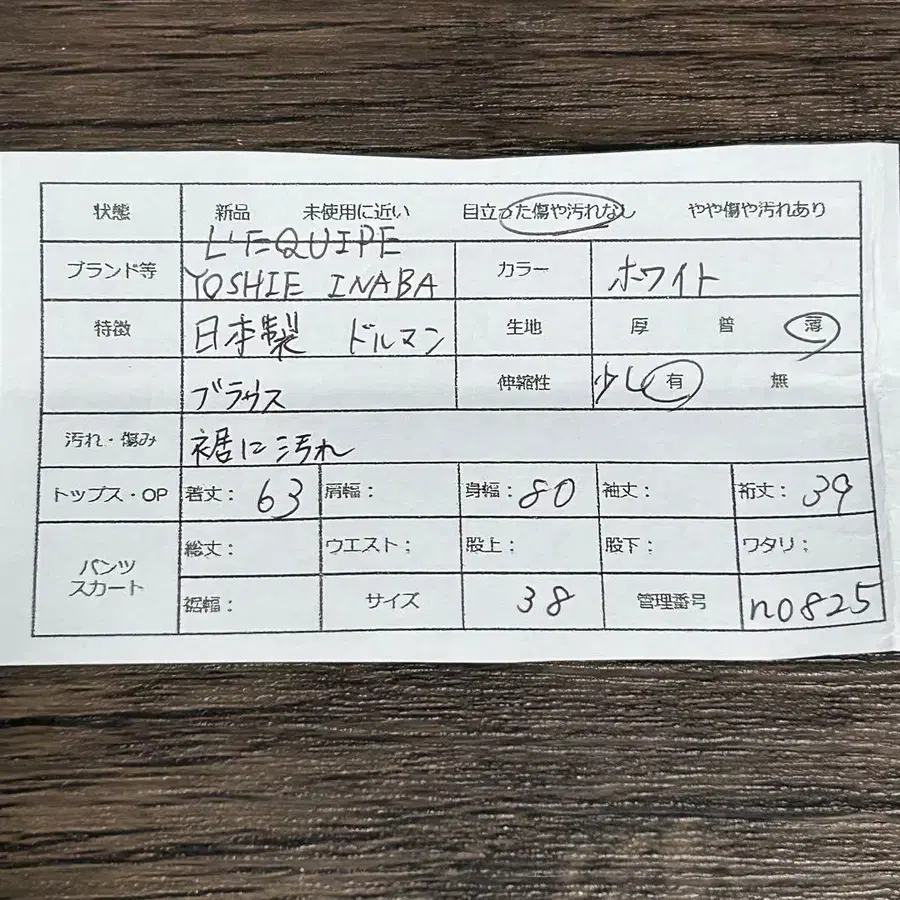 状態 新品 未使用に近い 目立った傷や汚れなし やや傷や汚れあり
ブランド等 L'EQUIPE YOSHIE INABA カラー ホワイト
特徴 日本製 ドルマン 生地 厚 普 薄
ブラウス 伸縮性 少し 有 無
汚れ・傷み 裾に汚れ
トップス・OP 着丈: 63 肩幅: 身幅: 80 袖丈: 裄丈: 39
パンツ スカート 総丈: ウエスト: 股上: 股下: ワタリ:
裾幅: サイズ 38 管理番号 no825